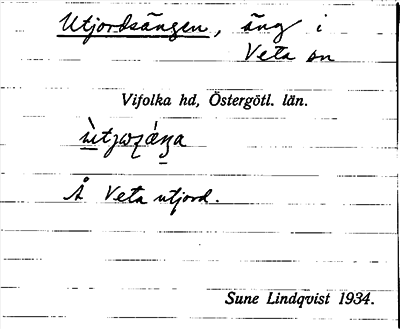 Utjordsängen, äng i
Veta sn
Vifolka hd, Östergötl. län.
Å Veta utjord.
Sune Lindqvist 1934.